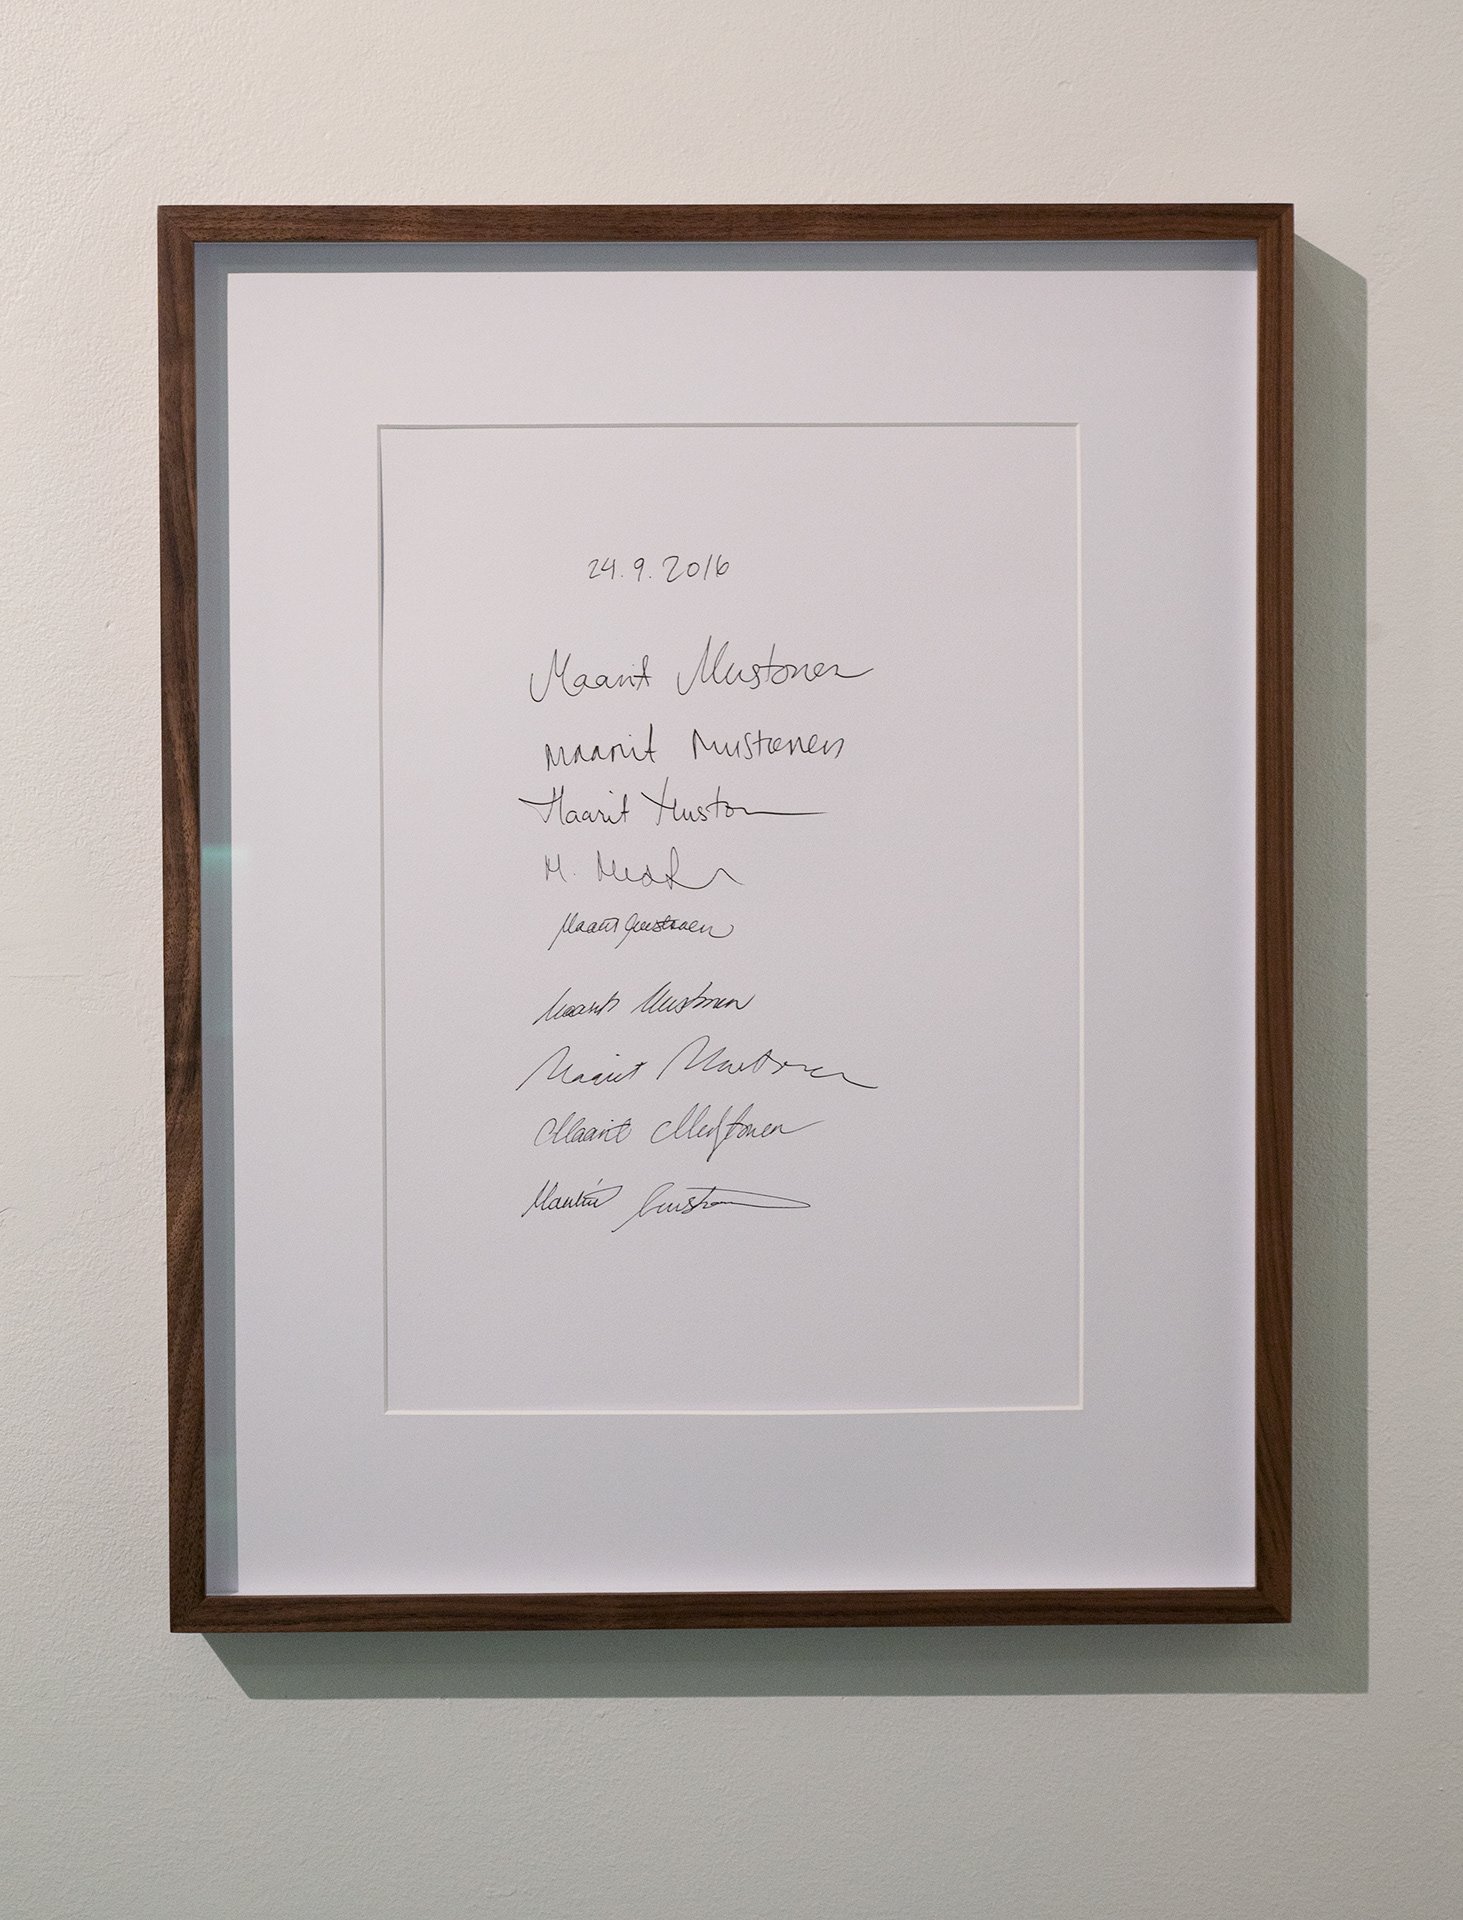 24.9.2016
Maarit Mustonen
Maarit Mustonen
Maarit Muston
M.
Maarit Mustonen
Maarit Mustonen
Maarit Mustonen
Maarit Mustonen
Maarit Muston